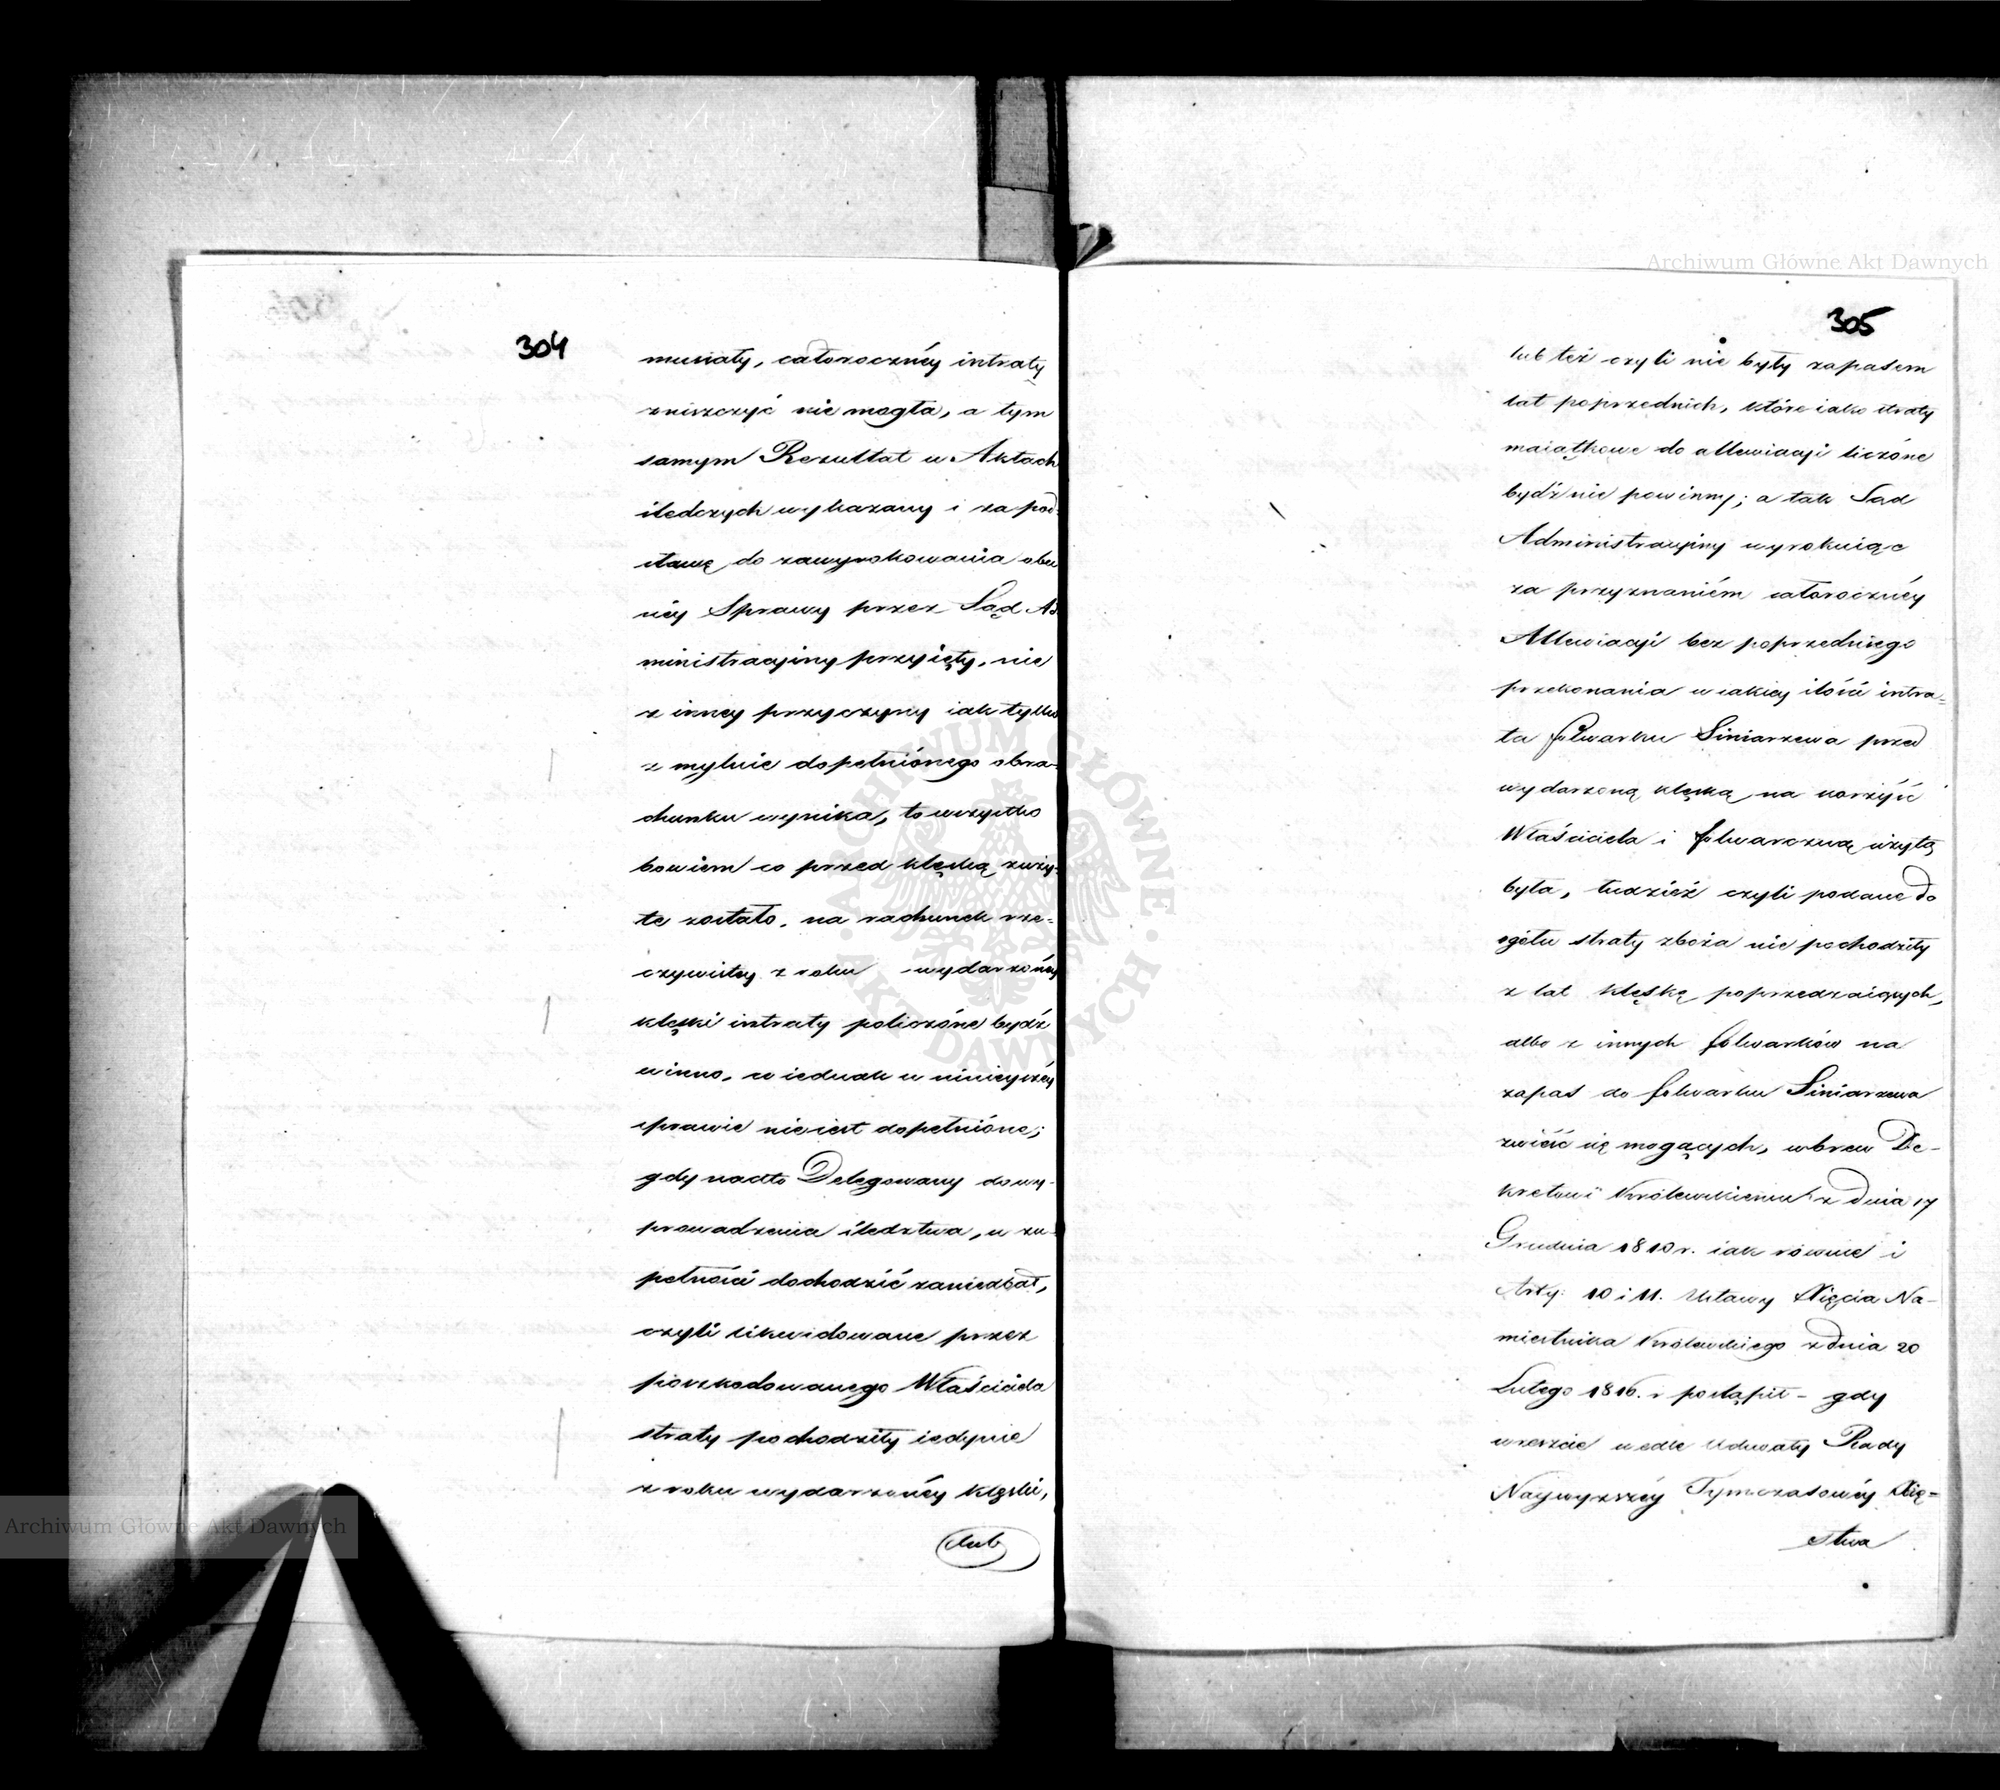 304
musiały, całorocznéy intraty
zniszczyć nie mogła, a tym
samym Rezultat w Aktach
śledczych wykazany i za pod-
stawę do zawyrokowania obec
néy Sprawy przez Sąd Ad
ministracyiny przyięty, nie
z innéy przyczyny iak tylko
z mylnie dopełnionego obra-
chunku wynika, to wszystko
bowiem co przed klęską zuży-
te zostało, na rachunek rze-
czywistey z roku wydarzonéy
klęski intraty policzone bydź
winno, co iednak w ninieyszéy
sprawie nie iest dopełnione;
gdy nadto Delegowany do wy-
prowadzenia śledztwa, w zu-
pełności dochodzić zaniedbał,
czyli likwidowane przez
poszkodowanego Właściciela
straty pochodziły iedynie
z roku wydarzonéy klęski,
lub
305
lub też czyli nie były zapasem
lat poprzednich, które iako straty
maiątkowe do allewiacyi liczone
bydź nie powinny; a tak Sąd
Administracyiny wyrokuiąc
za przyznaniém całorocznéy
Allewiacyi bez poprzedniego
przekonania w iakiey ilości intra-
ta folwarku Siniarzewa przed
wydarzoną klęską na korzyść
Właściciela i folwarczną użytą
była, tudzież czyli podane do
ogółu straty zboża nie pochodziły
z lat klęskę poprzedzaiących,
albo z innych folwarków na
zapas do folwarku Siniarzewa
zwieść się mogących, wbrew De-
kretowi Królewskiemu z dnia 17
Grudnia 1810 r. iak równie i
Arty: 10 i 11. Ustawy Xięcia Na-
miestnika Królewskiego z dnia 20
Lutego 1816. r postąpił – gdy
wreszcie wedle Uchwały Rady
Naywyższéy Tymczasowéy Xię-
stwa
Archiwum Główne Akt Dawnych
Archiwum Główne Akt Dawnych
ARCHIWUM GŁÓWNE AKT DAWNYCH